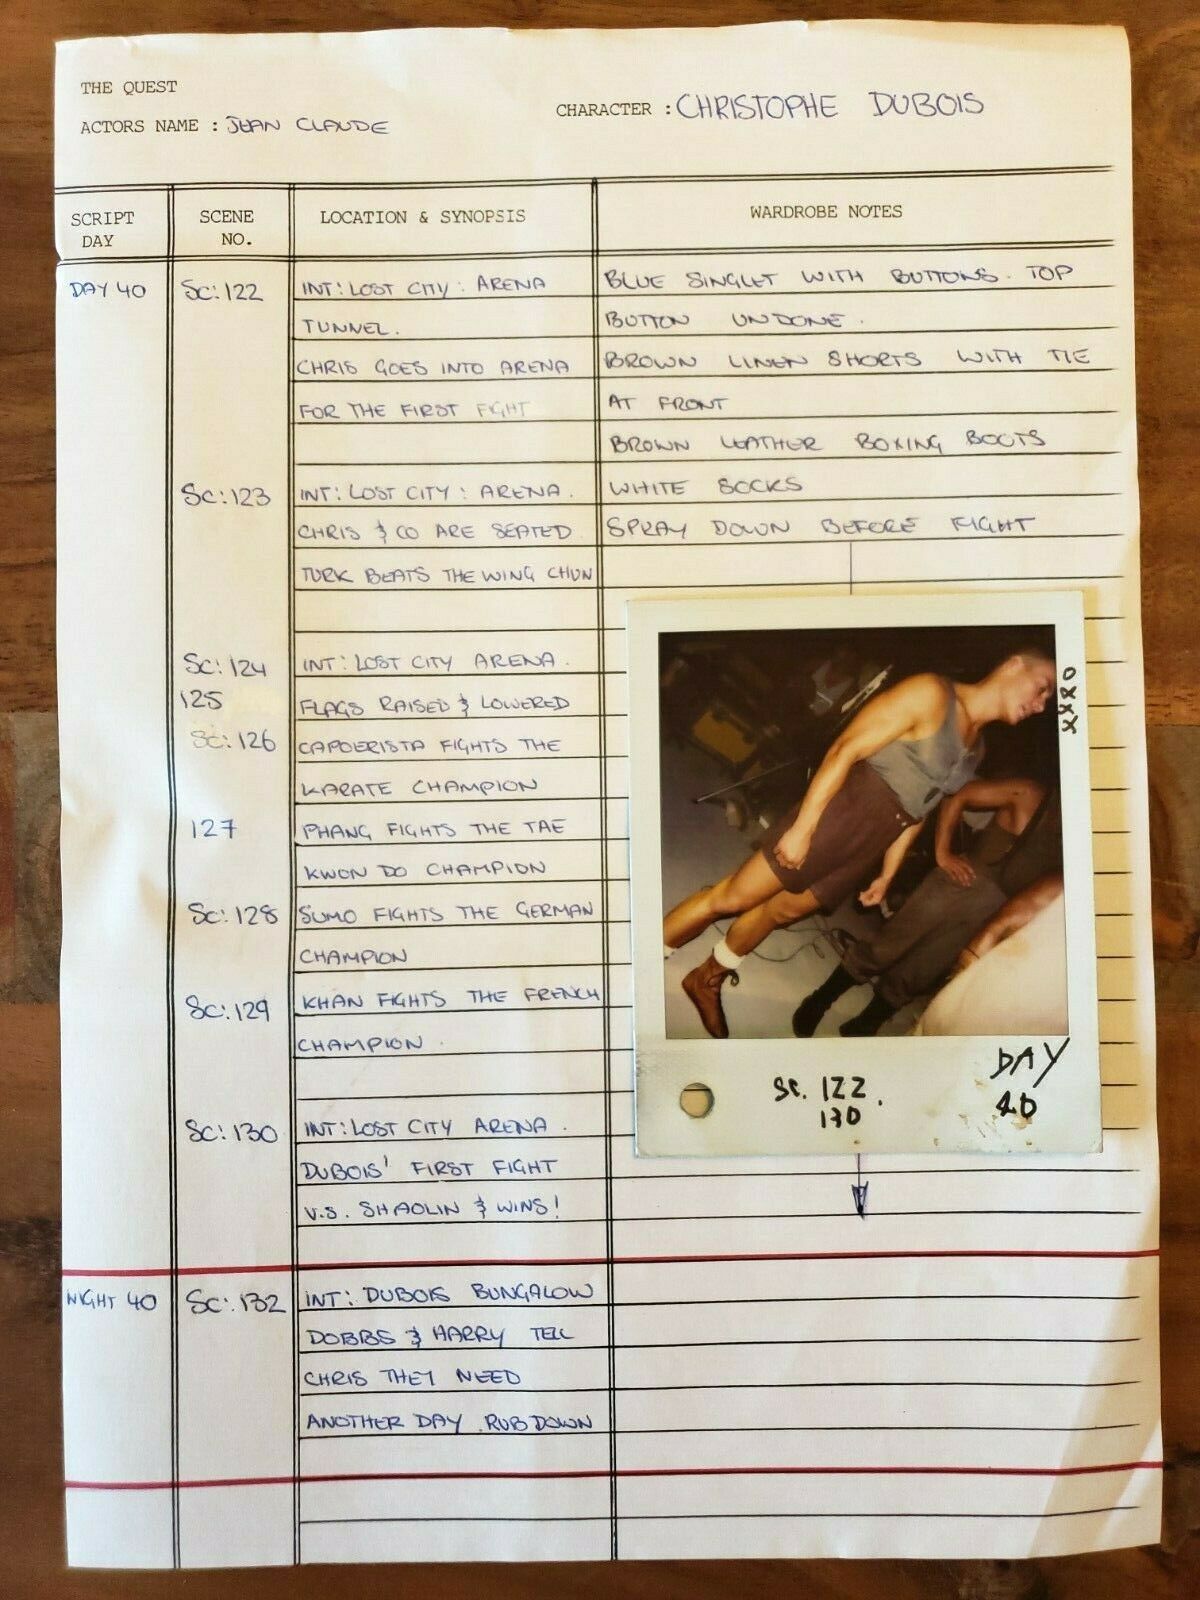 THE QUEST
ACTORS NAME : JEAN CLAUDE
CHARACTER : CHRISTOPHE DUBOIS
SCRIPT DAY
SCENE NO.
LOCATION & SYNOPSIS
WARDROBE NOTES
DAY 40
SC: 122
INT: LOST CITY: ARENA
TUNNEL.
CHRIS GOES INTO ARENA
FOR THE FIRST FIGHT
BLUE SINGLET WITH BUTTONS. TOP
BUTTON UNDONE.
BROWN LINEN SHORTS WITH TIE
AT FRONT
BROWN LEATHER BOXING BOOTS
WHITE SOCKS
SPRAY DOWN BEFORE FIGHT
SC: 123
INT: LOST CITY: ARENA.
CHRIS & CO ARE SEATED
TURK BEATS THE WING CHUN
SC: 124
INT: LOST CITY ARENA.
125
FLAGS RAISED & LOWERED
SC: 126
CAPOERISTA FIGHTS THE
KARATE CHAMPION
127
PHANG FIGHTS THE TAE
KWON DO CHAMPION
SC: 128
SUMO FIGHTS THE GERMAN
CHAMPION
SC: 129
KHAN FIGHTS THE FRENCH
CHAMPION.
SC: 130
INT: LOST CITY ARENA.
DUBOIS' FIRST FIGHT
V.S. SHAOLIN & WINS!
SC. 122.
130
DAY
40
NIGHT 40
SC: 132
INT: DUBOIS BUNGALOW
DOBBS & HARRY TELL
CHRIS THEY NEED
ANOTHER DAY. RUBDOWN